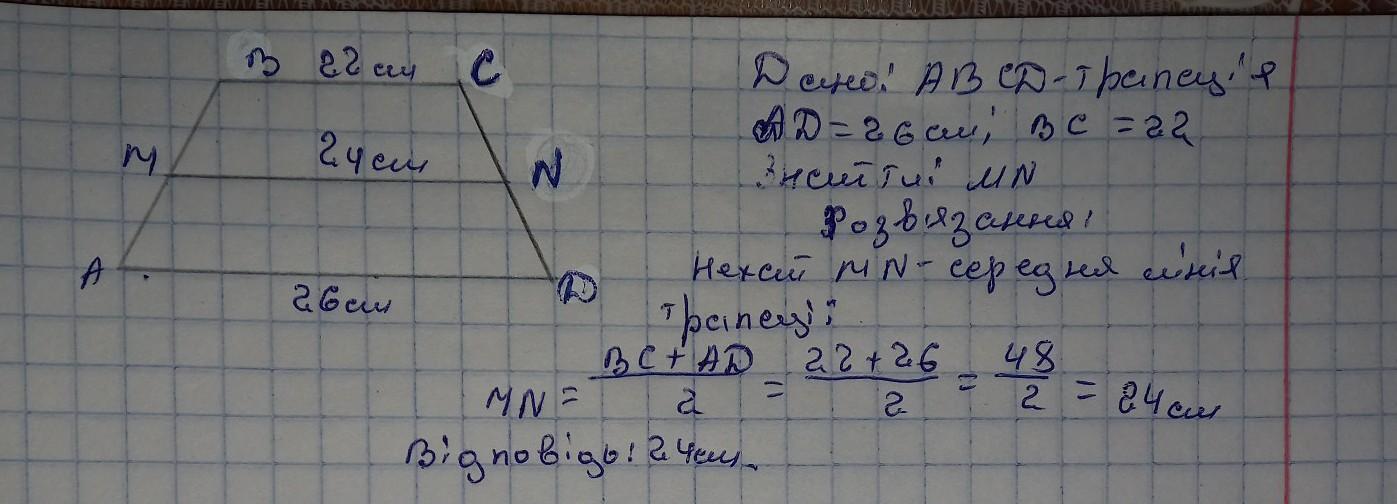 B 22 см C
M 24 см N
A D
26 см
Дано: ABCD - трапеція
AD = 26 см; BC = 22
Знайти: MN
Розв'язання:
Нехай MN - середня лінія
трапеції
MN = BC + AD / 2 = 22 + 26 / 2 = 48 / 2 = 24 см
Відповідь: 24 см.